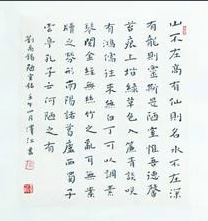 山不在高有仙則名水不在深
有龍則靈斯是陋室惟吾德馨
苔痕上堦綠草色入簾青談咲
有鴻儒往來無白丁可以調素
琴閱金經無絲竹之亂耳無案
牘之勞形南陽諸葛廬西蜀子
雲亭孔子云何陋之有
劉禹錫陋室銘